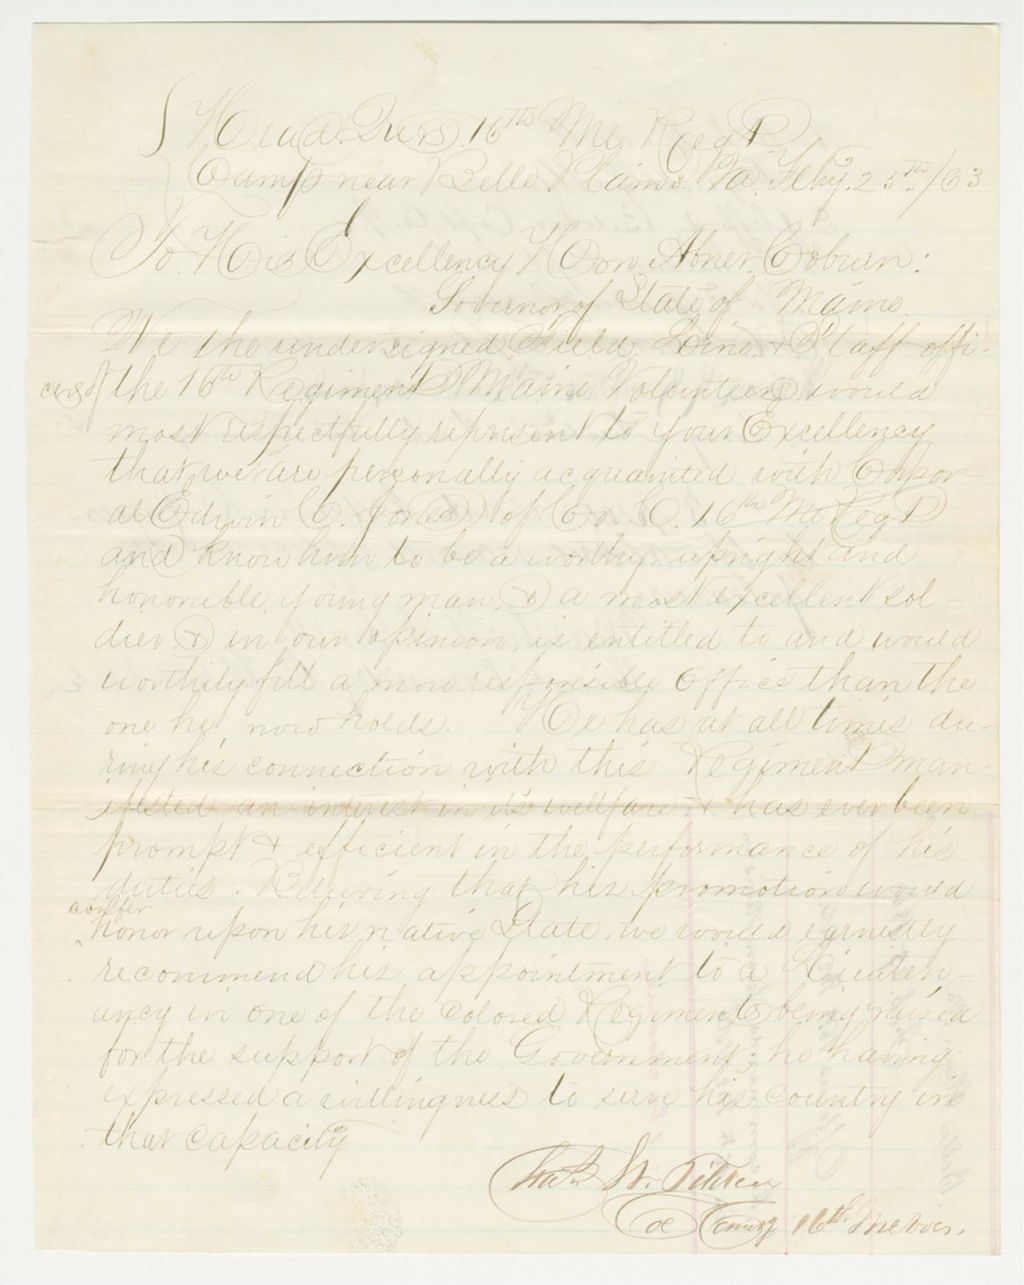 Head. Qurs. 16th Me Regt
Camp near Belle Plains. Va. Feby. 25th /63
To. His Excellency Hon. Abner. Coburn:
Governor of State of Maine.
We the undersigned. Field. Line. & Staff offi-
cers of the 16th Regiment Maine Volunteers would
most respectfully represent to your Excellency
that we are personally acquainted with Corpor-
al Edwin C. Jones. of Co. C. 16th Me Regt
and know him to be a worthy, upright and
honorable, young man, & a most excellent sol-
dier & in our opinion, is entitled to and would
worthily fill a more responsible office than the
one he, now holds. He has at all times du-
ring his connection with this Regiment man-
ifested an interest in its wellfare. & has ever been
prompt & efficient in the performance of his
duties. Believing that his promotion would
confer
honor upon his native State, we would earnestly
recommend his appointment to a Lieuten-
ancy in one of the colored Regiments being raised
for the support of the Government; he having
expressed a willingness to serve his country in
that capacity
Chas. W. Tilden
Col Comdg 16th Me Vols.